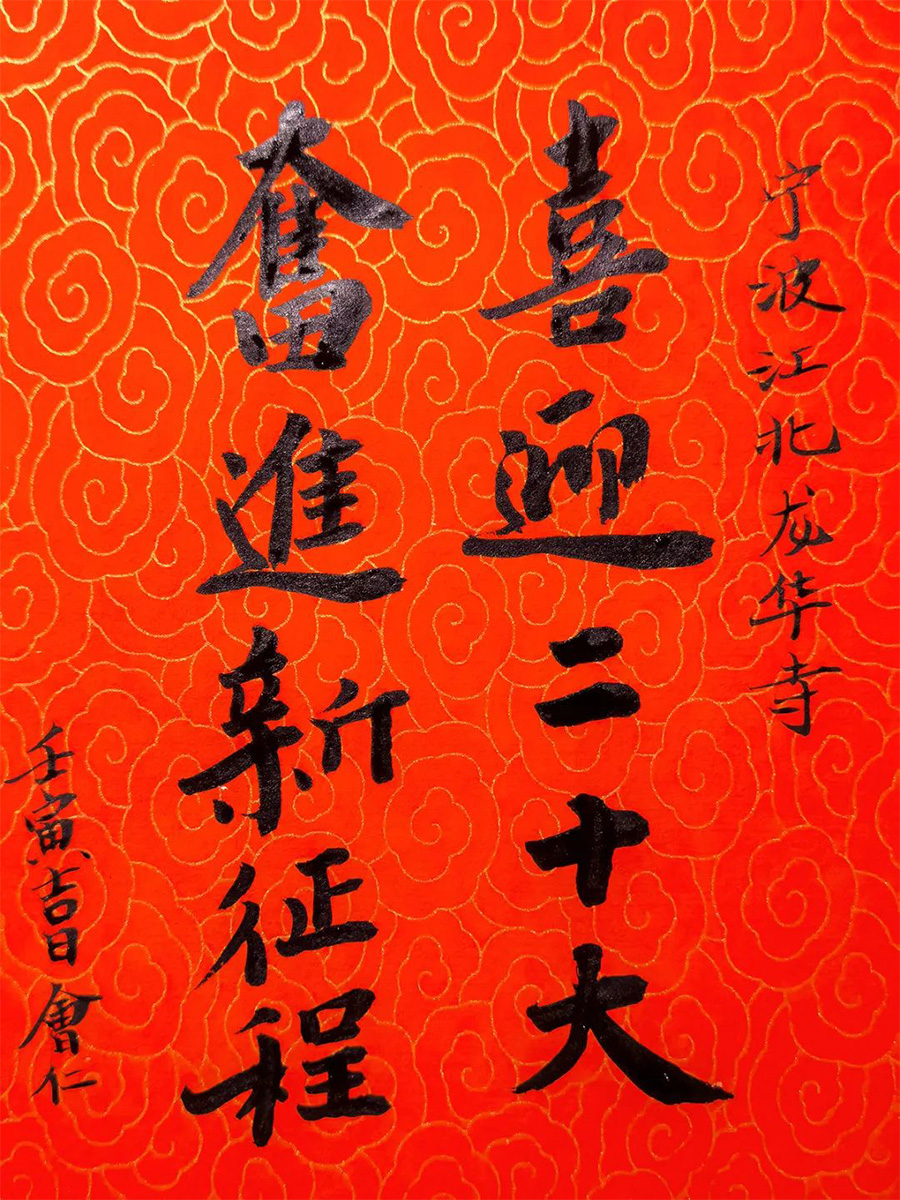 宁波江北龙华寺
喜迎二十大
奮進新征程
壬寅吉日會仁